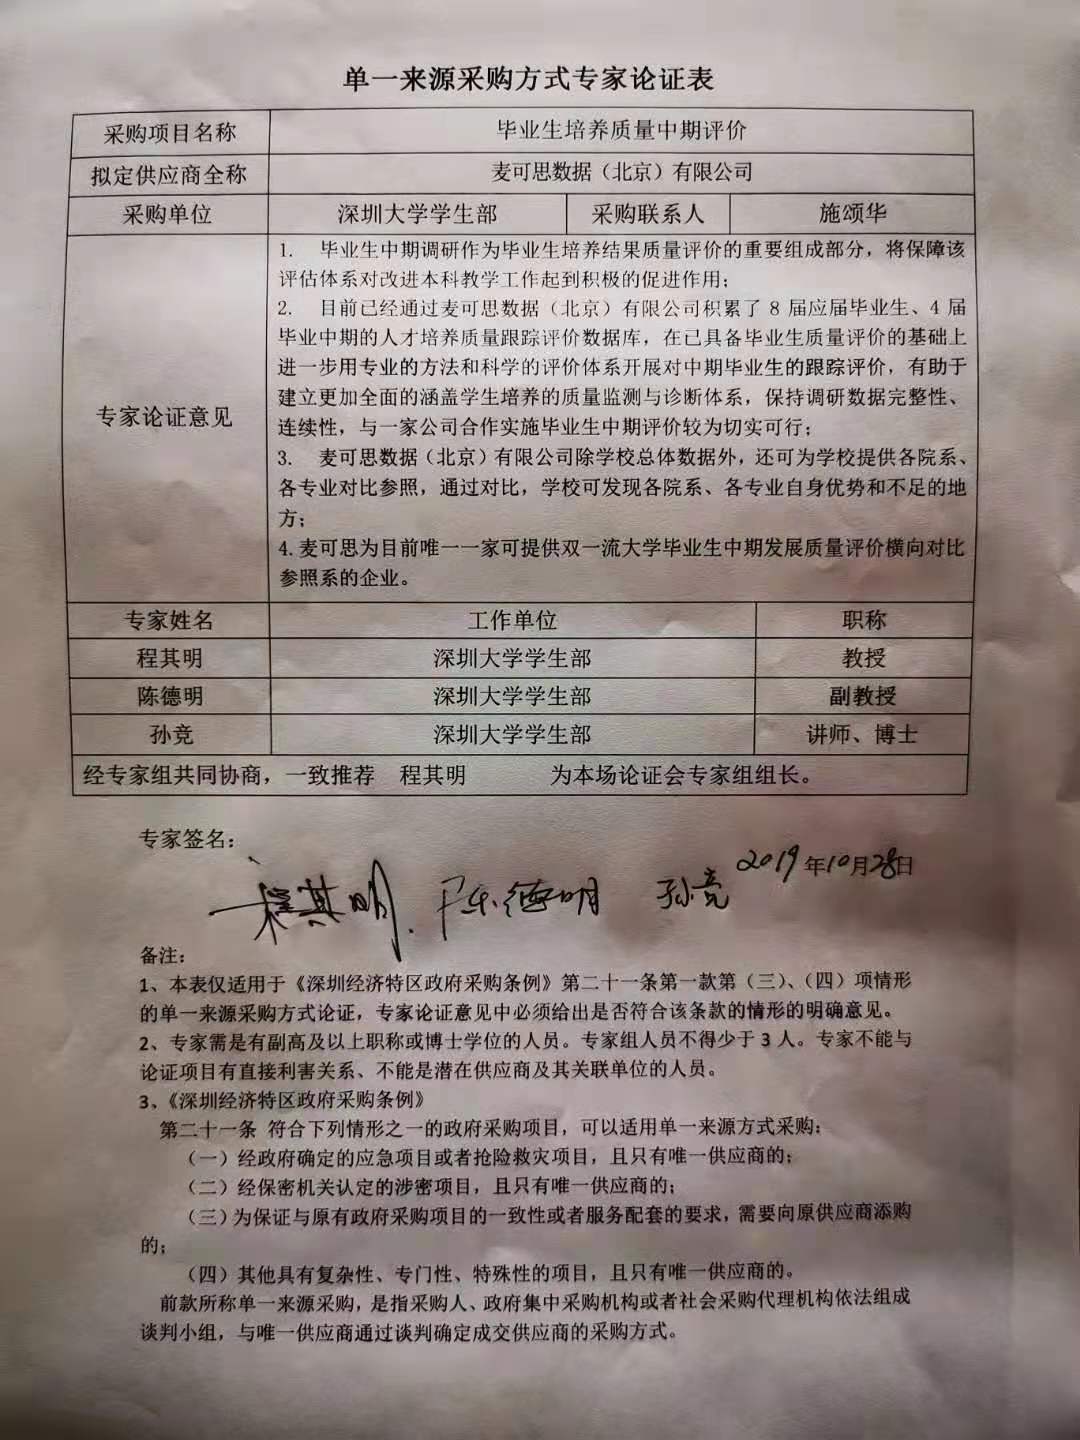 单一来源采购方式专家论证表
采购项目名称 毕业生培养质量中期评价
拟定供应商全称 麦可思数据（北京）有限公司
采购单位 深圳大学学生部 采购联系人 施颂华
专家论证意见
1. 毕业生中期调研作为毕业生培养结果质量评价的重要组成部分，将保障该
评估体系对改进本科教学工作起到积极的促进作用；
2. 目前已经通过麦可思数据（北京）有限公司积累了 8 届应届毕业生、4 届
毕业中期的人才培养质量跟踪评价数据库，在已具备毕业生质量评价的基础上
进一步用专业的方法和科学的评价体系开展对中期毕业生的跟踪评价，有助于
建立更加全面的涵盖学生培养的质量监测与诊断体系，保持调研数据完整性、
连续性，与一家公司合作实施毕业生中期评价较为切实可行；
3. 麦可思数据（北京）有限公司除学校总体数据外，还可为学校提供各院系、
各专业对比参照，通过对比，学校可发现各院系、各专业自身优势和不足的地
方；
4.麦可思为目前唯一一家可提供双一流大学毕业生中期发展质量评价横向对比
参照系的企业。
专家姓名 工作单位 职称
程其明 深圳大学学生部 教授
陈德明 深圳大学学生部 副教授
孙竞 深圳大学学生部 讲师、博士
经专家组共同协商，一致推荐 程其明 为本场论证会专家组组长。
专家签名：
程其明. 陈德明 孙竞 2019年10月28日
备注：
1、本表仅适用于《深圳经济特区政府采购条例》第二十一条第一款第（三）、（四）项情形
的单一来源采购方式论证，专家论证意见中必须给出是否符合该条款的情形的明确意见。
2、专家需是有副高及以上职称或博士学位的人员。专家组人员不得少于 3 人。专家不能与
论证项目有直接利害关系、不能是潜在供应商及其关联单位的人员。
3、《深圳经济特区政府采购条例》
第二十一条 符合下列情形之一的政府采购项目，可以适用单一来源方式采购：
（一）经政府确定的应急项目或者抢险救灾项目，且只有唯一供应商的；
（二）经保密机关认定的涉密项目，且只有唯一供应商的；
（三）为保证与原有政府采购项目的一致性或者服务配套的要求，需要向原供应商添购
的；
（四）其他具有复杂性、专门性、特殊性的项目，且只有唯一供应商的。
前款所称单一来源采购，是指采购人、政府集中采购机构或者社会采购代理机构依法组成
谈判小组，与唯一供应商通过谈判确定成交供应商的采购方式。